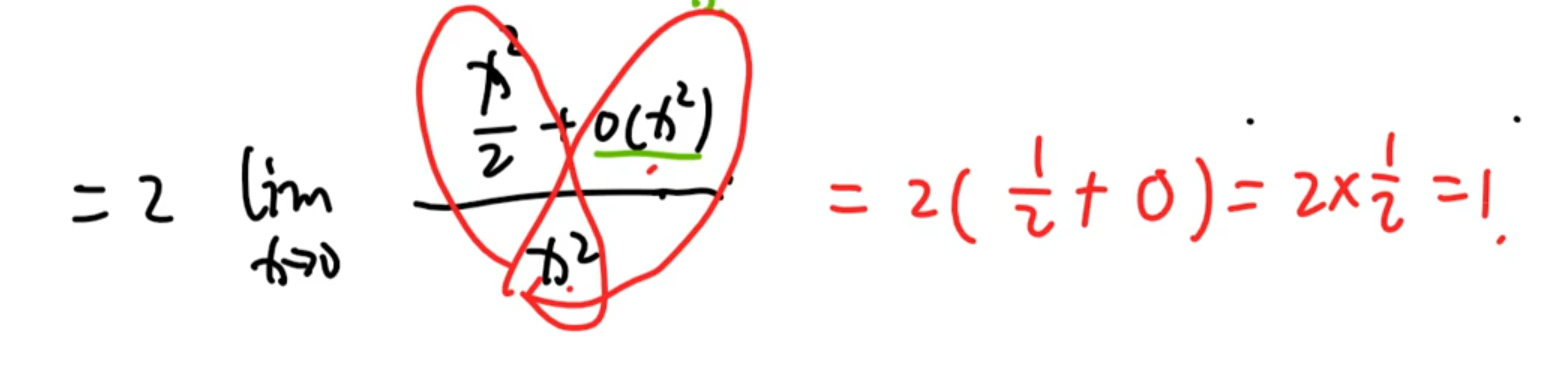 = 2 lim x→0 (x²/2 + o(x²))/x² = 2(1/2 + 0) = 2×1/2 = 1.